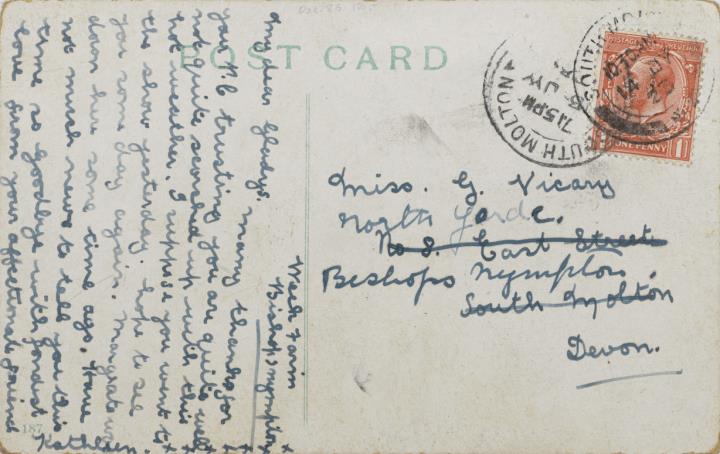 POST CARD
Bishops nympton
My dear Gladys. Many thanks for
your P.C trusting you are quite well
not quite scorched up with this
hot weather. I suppose you went to
the show yesterday. hope to see
you some day again. Margrate
down here some time ago. Have
not much news to tell you this
time so goodbye with fondest
love from your affectionate friend
Kathleen.
x x x x x
187
SOUTH MOLTON
7.15 PM
JY
SOUTH MOLTON
ONE PENNY
Miss. G. Vicary
North
No 8. East Street
Bishops Nympton.
South Molton
Devon.